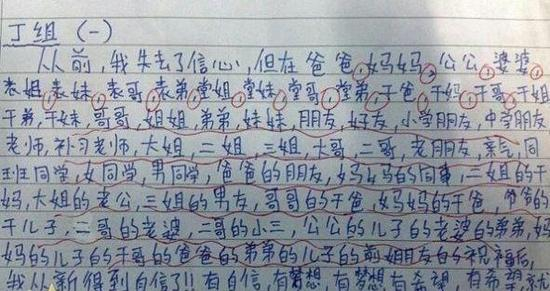 丁组 (一)
从前,我失去了信心,但在爸爸,妈妈,公公,婆婆,
表姐,表妹,表哥,表弟,堂姐,堂妹,堂哥,堂弟,干爸,干妈,干哥,干姐
干弟,干妹,哥哥,姐姐,弟弟,妹妹,朋友,好友,小学朋友,中学朋友
老师,补习老师,大姐,二姐,三姐,大哥,二哥,老朋友,亲气,同
班同学,女同学,男同学,爸爸的朋友,妈妈的同事,二姐的干
妈,大姐的老公,三姐的男友,哥哥的干爸,妈妈的干爸,爷爷的
干儿子,二哥的老婆,二哥的小三,公公的儿子的老婆的弟弟,妈
妈的儿子的干哥的爸爸的弟弟的儿子的前女朋友的祝福后,
我从新得到自信了!! 有自信,有梦想,有梦想有希望,有希望就